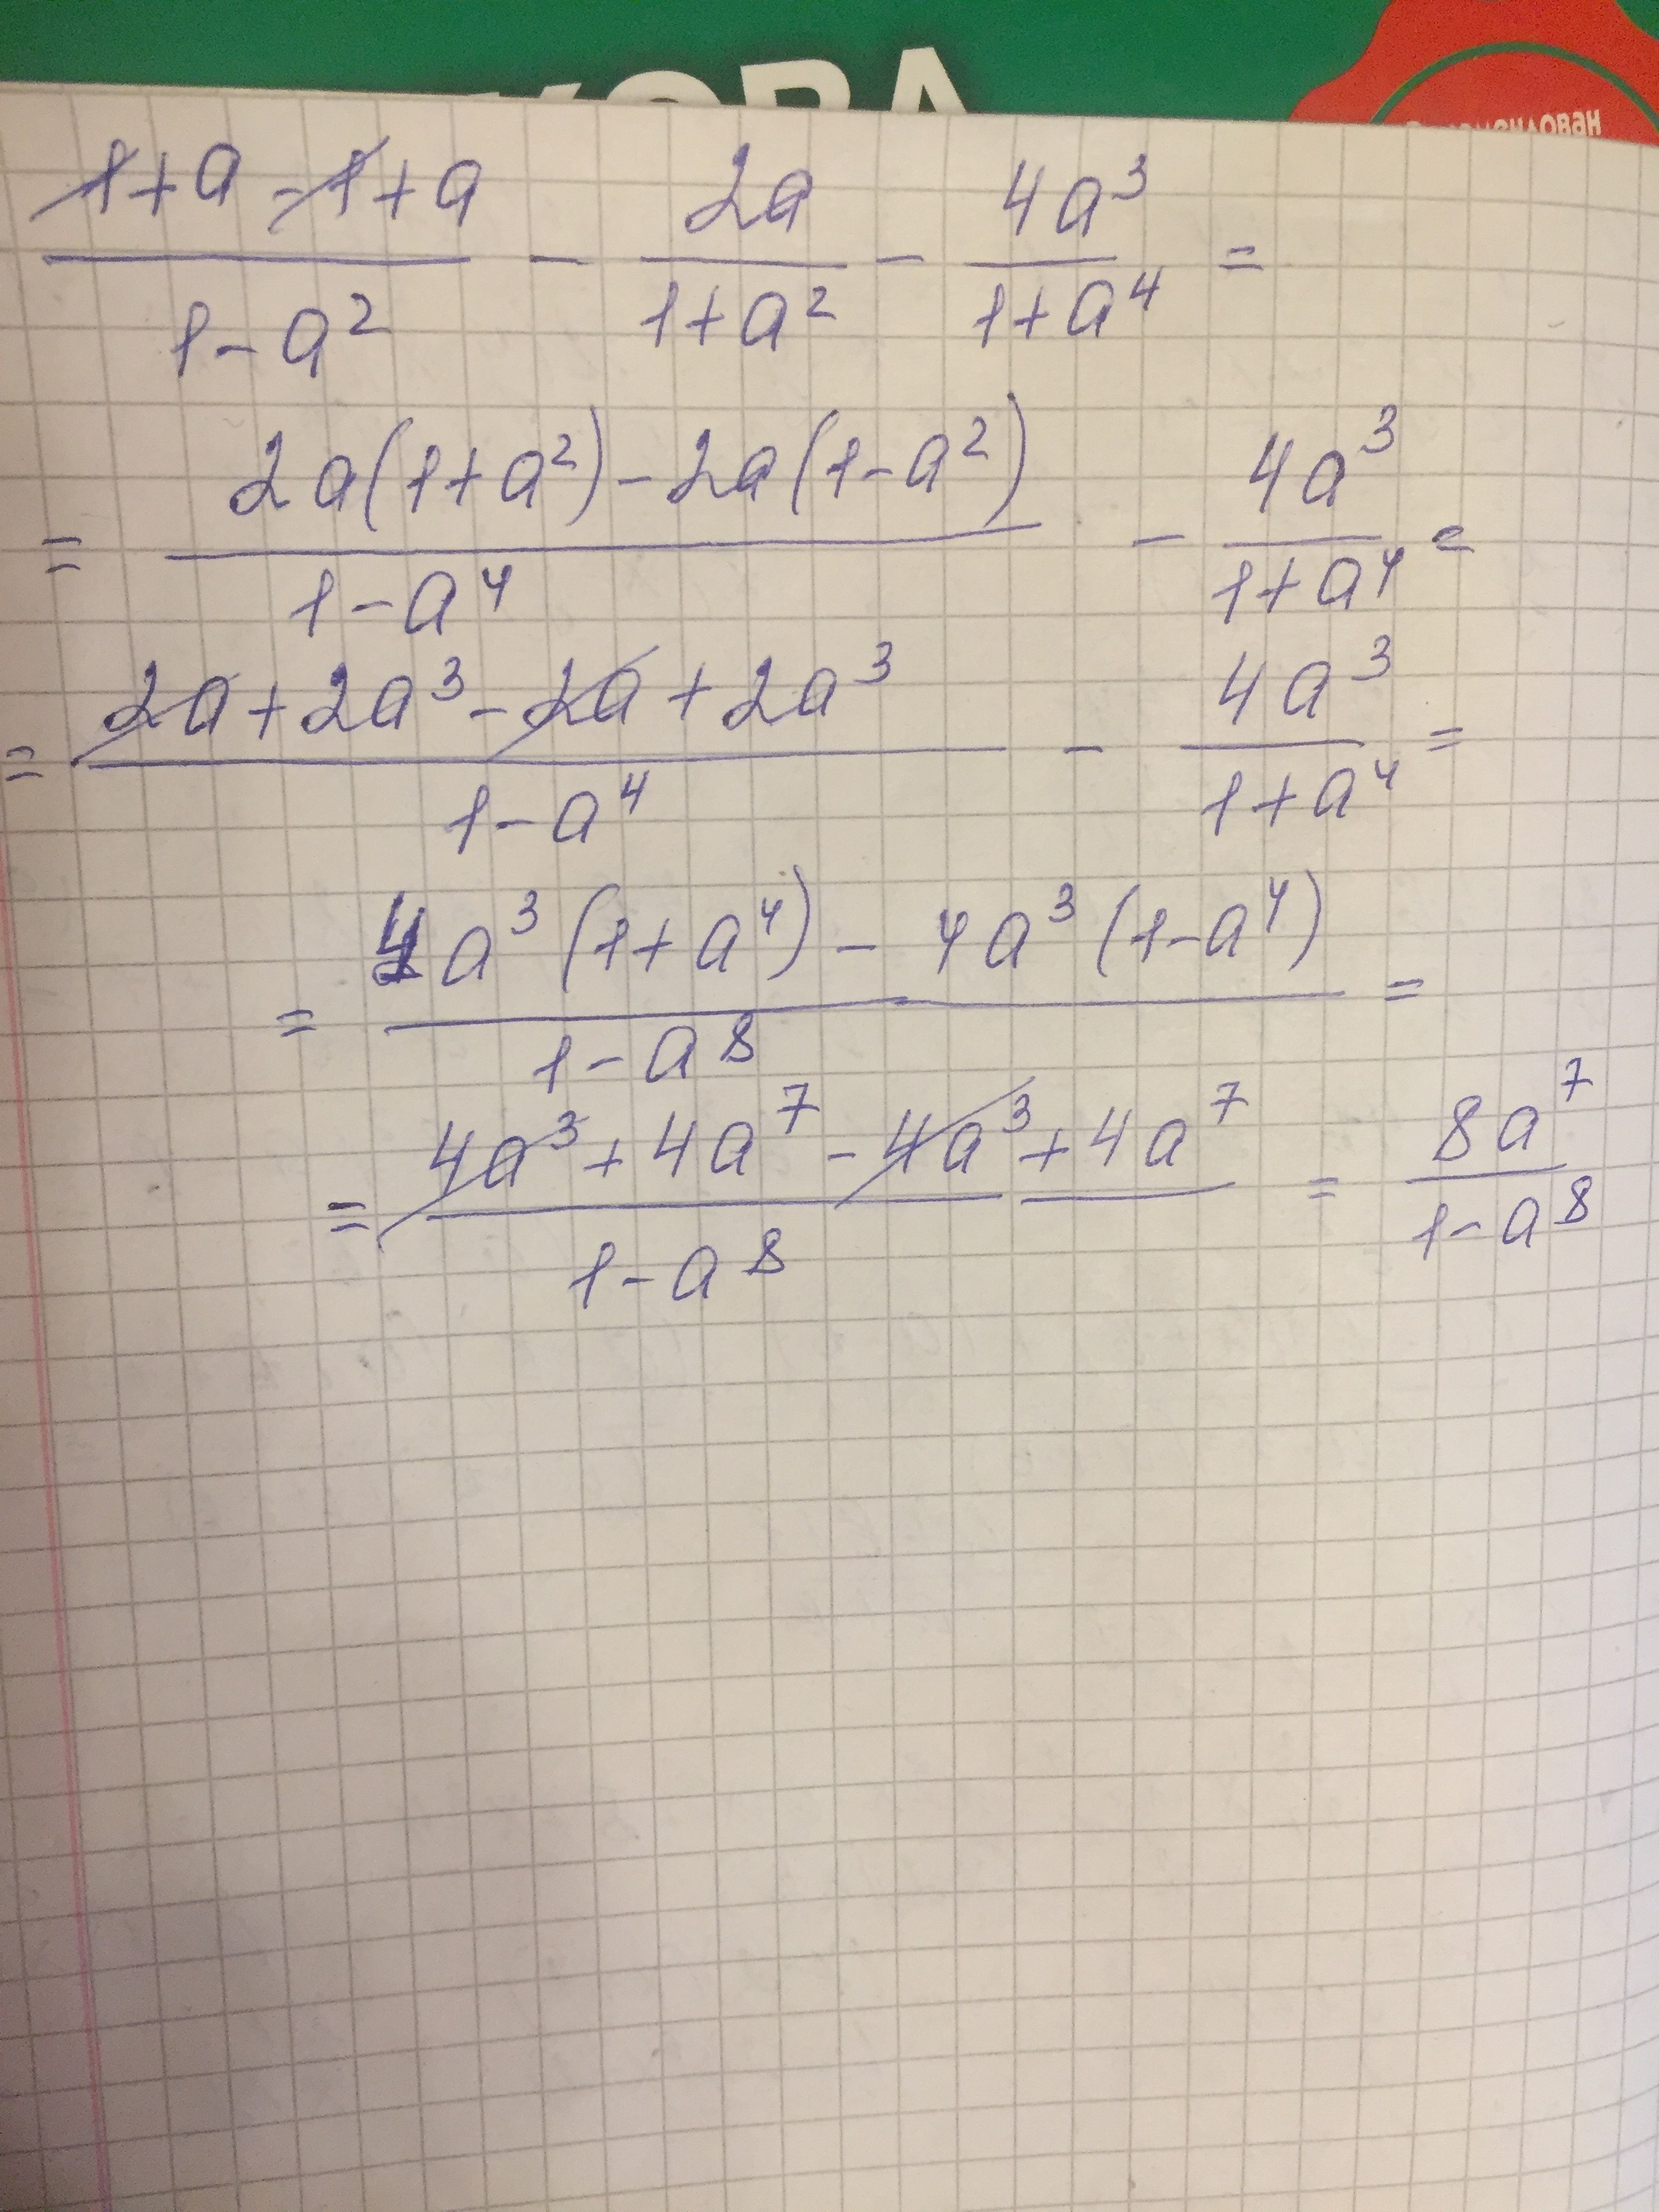 (1+a-1+a)/(1-a²) - 2a/(1+a²) - 4a³/(1+a⁴) =
= (2a(1+a²)-2a(1-a²))/(1-a⁴) - 4a³/(1+a⁴) =
= (2a+2a³-2a+2a³)/(1-a⁴) - 4a³/(1+a⁴) =
= (4a³(1+a⁴)-4a³(1-a⁴))/(1-a⁸) =
= (4a³+4a⁷-4a³+4a⁷)/(1-a⁸) = 8a⁷/(1-a⁸)